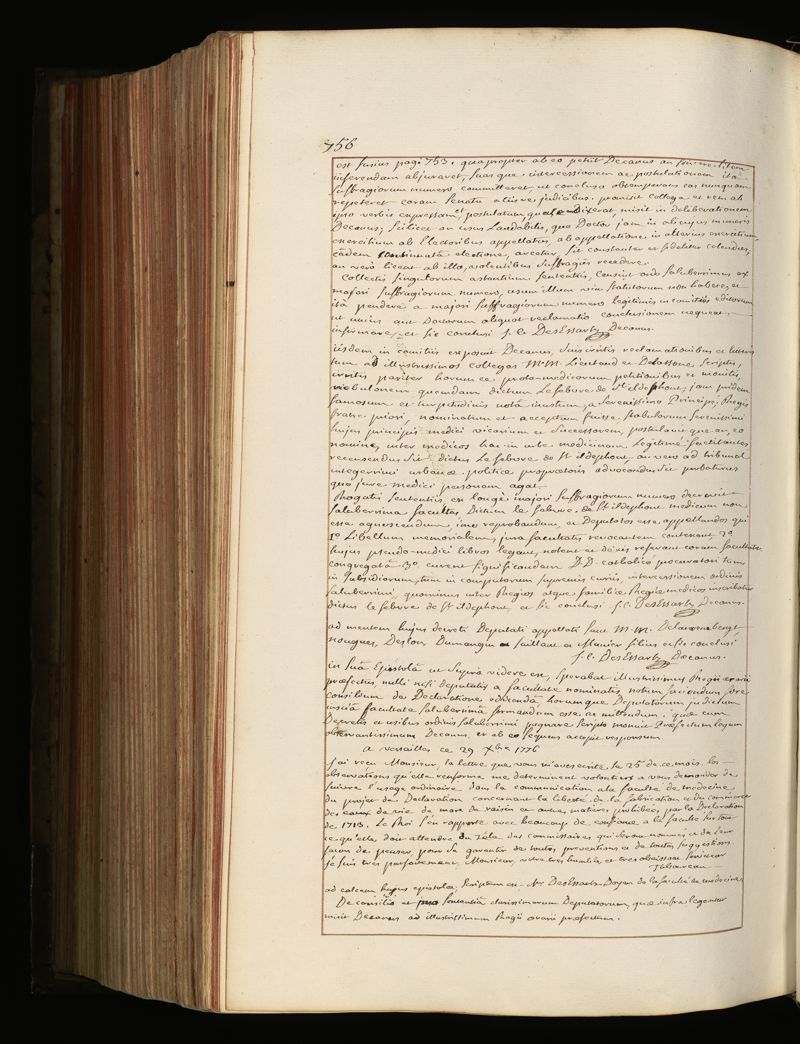 756
est fusius pagi 753. quapropter ab eo petiit Decanus an sincere litem
inferendam abjuraret, suas que intercessionem ac postulationem ita
suffragiorum numero committeret, ut concluso obtemperans eas nunquam
repeteret coram senatu aliisve judicibus. promisit collega et rem ab
ipso verbis expressam et postulatum, misit in deliberationem
Decanus; scilicet an usus Laudabilis, quo Doctor jam in alicujus muneris
exercitium ab Electoribus appellatus, ab appellatione in alterius exercitium,
eâdem continuatâ electione, arcetur, sit constanter et fideliter colendus,
an vero liceat ab illo, volentibus suffragiis recedere.
Collectis singulorum astantium sententiis, censuit ordo saluberrimus ex
majori suffragiorum numero, usum illum vim statutorum non habere, et
ità pendere a majori suffragiorum numero legitimis in comitiis editorum
ut unius aut Doctorum aliquot reclamatio conclusionem nequeat
infirmare, et sic conclusi j. c. DesEssartz Decanus.
iisdem in comitiis exposuit Decanus, suis irritis reclamationibus et litteris
tum ad illustrissimos collegas M.M. Lieutaud et Delassone, scriptis,
irritis pariter horumce proto-medicorum petitionibus et monitis,
nebulonem quemdam dictum Le febvre de St ildephont, jam pridem
famosum et turpitudinis notâ inustum, a serenissimo Principe, Regis
fratre priori, nominatum et acceptum fuisse, stabulorum serenissimi
hujus principis medici vicarium et successorem, postulavit que an, eo
nomine, inter medicos hac in urbe medicinam Legitimè factitantes
recensendus sit dictus Le febvre de St ildephont an vero ad tribunal
integerrimi urbanae politicae propraetoris advocandus sit probaturus
quo jure medici personam agat.
Rogatis sententiis ex longè majori suffragiorum numero decrevit
saluberrima facultas Dictum le febvre de St ildephont medicum non
esse agnoscendum, imo reprobandum, et Deputatos esse appellandos qui
1o Libellum memorialem, jura facultatis revocantem conterant 2o
hujus pseudo-medici libros legant, notent et de iis referant coram facultate
congregatâ 3o curent significandam D.D. catholico procuratori tum
in subsidiorum, tum in computorum supremis curiis, intercessionem ordinis
saluberrimi, quominus inter Regios atque familiae Regiae medicos inscribatur
dictus le febvre de St ildephont, et sic conclusi j. c. DesEssartz Decanus.
ad mentem hujus decreti Deputati appellati sunt M.M. Delaurembergt,
nouguez, Deslon, Dumangin et saillant et Munier filius et sic conclusi
j. c. DesEssartz Decanus.
in suâ Epistolâ ut suprà videre est, sperabat illustrissimus Regii aerarii
praefectus, nulli nisi deputatis a facultate nominatis notum faciendum fore
consilium de Declaratione edicendâ horumque Deputatorum judicium
insciâ facultate saluberrimâ formandum esse ac mittendum. quae cum
Decretis et usibus ordinis saluberrimi pugnare scripto monuit Praefectum legum
observantissimum Decanus, et ab eo sequens accepit responsum.
a versailles ce 29 Xbre 1776
j'ai recu Monsieur, la lettre que vous m'aves ecrite le 25 de ce mois. les
observations qu'elle renferme me determinent volontiers a vous demander de
suivre l'usage ordinaire dans la communication a la faculté de medecine
du projet de Declaration concernant la liberté de la fabrication et du commerce
des eaux de vie de marc de raisin et autres matieres prohibées par la Declaration
de 1713. Le Roi s'en rapporte avec beaucoup de confiance a la faculté surtout
ce qu'elle doit attendre du zele des commissaires qui seront nommés et de leur
facon de penser, pour se garentir de toutes preventions et de toutes suggestions.
je suis tres parfaitement, Monsieur, votre tres humble et tres obeissant serviteur
Taboureau
ad calcem hujus epistolae, scriptum est Mr DesEssartz Doyen de la faculté de medecine
De consilio et sententiâ clarissimorum Deputatorum, quae infra legentur
misit Decanus ad illustrissimum Regii aerarii praefectum.